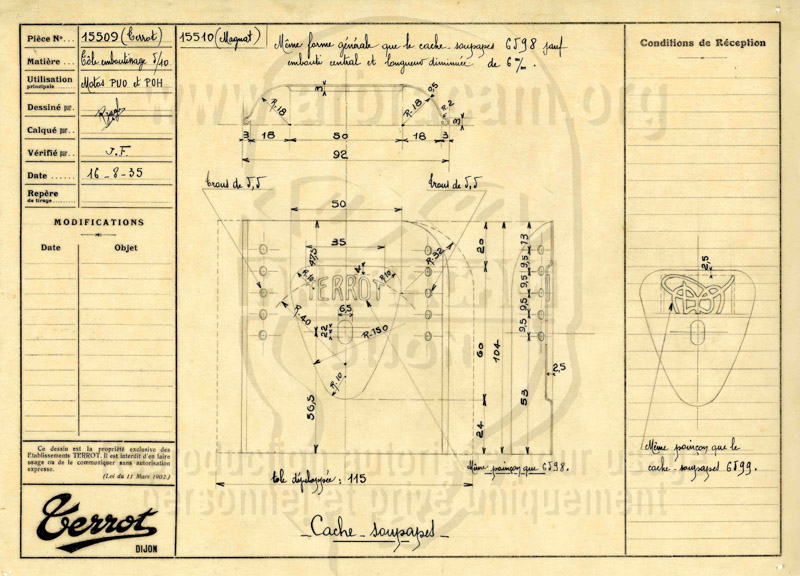 Pièce No... 15509 (Terrot)
15510 (Magnat)
Matière... Tôle emboutissage 5/10
Utilisation principale... Motos PUO et POH
Dessiné par...
Calqué par...
Vérifié par... J.F.
Date...... 16-8-35
Repère du tirage........
MODIFICATIONS
Date Objet
Ce dessin est la propriété exclusive des
Etablissements TERROT. Il est interdit d'en faire
usage ou de le communiquer sans autorisation
expresse.
(Loi du 11 Mars 1902.)
Terrot
DIJON
Même forme générale que le cache-soupapes 6598 sauf
embouti central et longueur diminuée de 6 m/m.
www.arbracam.org
3
R.18
R.18
0,5
R.2
3
3 18 50 18 3
92
Trous de 5,5
Trous de 5,5
50
35
47,5
R.10
R.10
4
R.32
TERROT
6,5
R.40
R.150
22
R.10
56,5
20
60
24
104
13
9,5
9,5
9,5
9,5
53
2,5
tôle développée : 115
Même poinçon que 6598.
Cache-soupapes
DIJON
personnel et privé uniquement
Conditions de Réception
2,5
Même poinçon que le
cache-soupapes 6599.